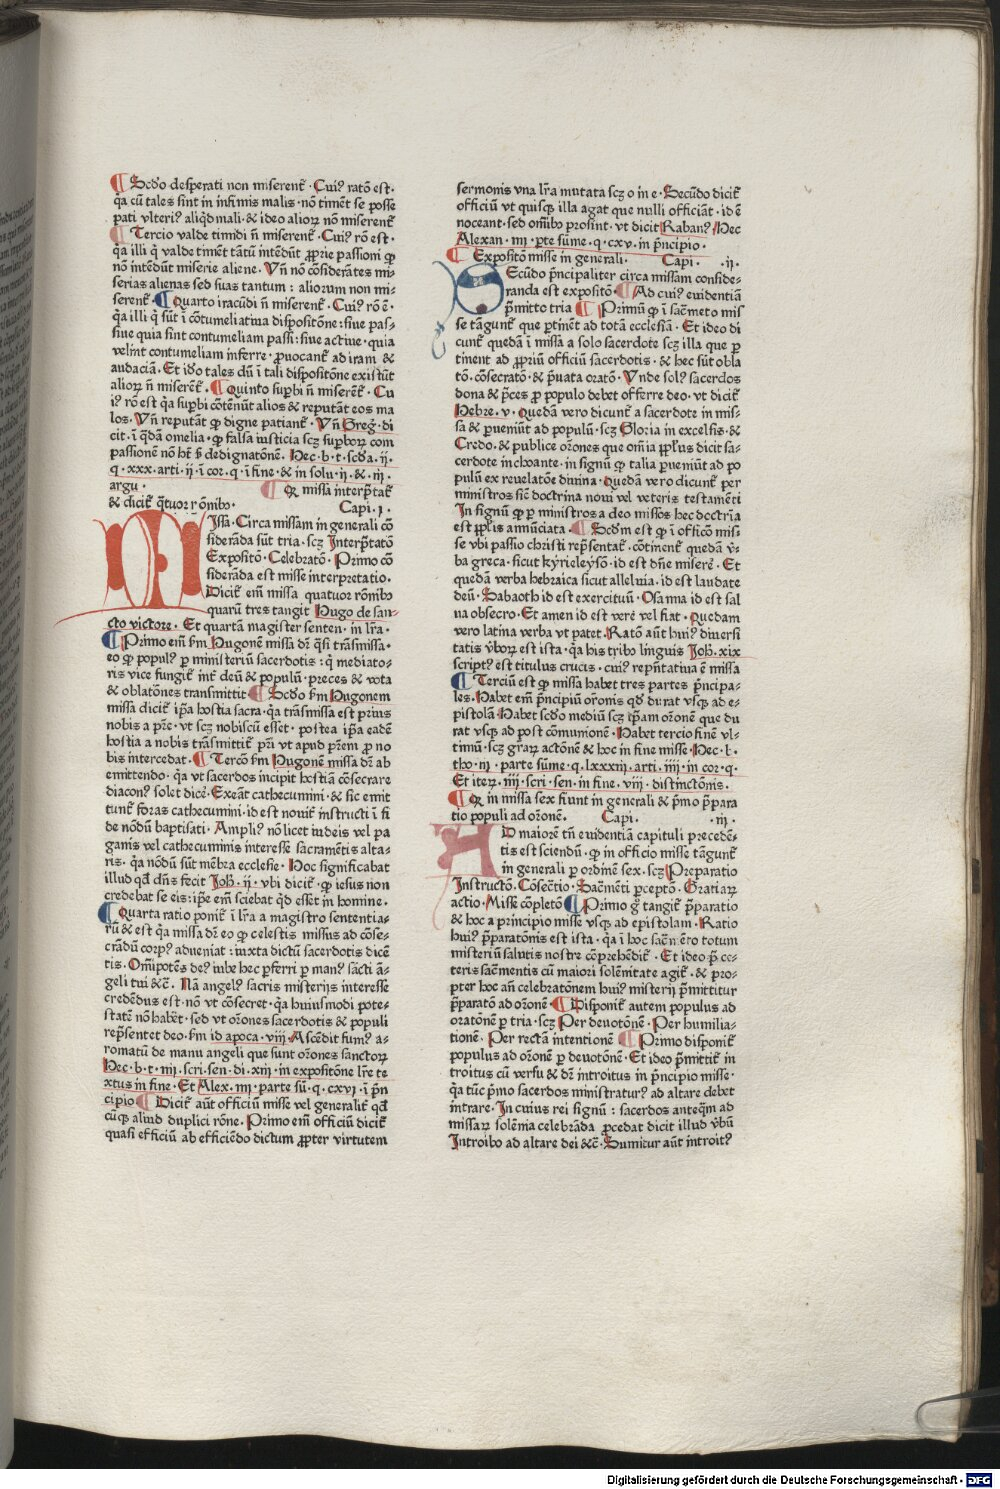 ¶ Scd̓o desperati non miserent᷑ · Cui⁹ ratō est ·
q̄a cū tales sint in infimis malis · nō timēt se posse
pati vlteri⁹ aliq̄d mali · & ideo alioꝝ nō miserent᷑
¶ Tercio valde timidi n̄ miserent᷑ · Cui⁹ rō est ·
q̄a illi q̄ valde timēt tātū intēdūt ꝓprie passioni ꝙ
nō intēdūt miserie aliene · Vn̄ nō cōsiderātes mi-
serias alienas sed suas tantum : aliorum non mi-
serent᷑ ¶ Quarto iracūdi n̄ miserent᷑ · Cui⁹ rō ē ·
q̄a illi q̄ sūt ī cōtumeliatiua dispositōne : siue pas-
siue quia sint contumeliam passi : siue actiue · quia
velint contumeliam inferre · ꝓuocant᷑ ad iram &
audaciā · Et id̓o tales dū ī tali dispositōne existūt
alioꝝ n̄ miserēt᷑ · ¶ Quinto supb̄i n̄ miserēt᷑ · Cu
i⁹ rō est q̄a supb̄i cōtēnūt alios & reputāt eos ma
los · Vn̄ reputāt ꝙ digne patiant᷑ · Vn̄ Greg̓ · di
cit · ī q̄dā omelia · ꝙ falsa iusticia scꝫ supboꝝ com
passionē nō hꝫ sꝫ dedignatōnē · Hec · b · t · scd̓a · ij ·
q · xxx · arti · ij · ī cor · q · ī fine · & in solu · ij · & · iij ·
argu ·
¶ Qꝝ missa interp̄tat᷑
& dicit᷑ q̄tuor r ōnibꝰ · Capi · j ·
MIssā · Circa missam in generali cō
siderāda sūt tria · scꝫ Interp̄tatō
Expositō · Celebratō · Primo cō
siderāda est misse interpretatio ·
Dicit᷑ em̄ missa quatuor rōnibꝰ
quarū tres tangit Hugo de san-
cto victore · Et quartā magister senten · in lr̄a ·
¶ Primo em̄ scd̓m Hugonē missa dr̄ q̄si trāsmissa ·
eo ꝙ popul⁹ ꝑ ministeriū sacerdotis : q̄ mediato-
ris vice fungit᷑ int᷑ deū & populū · preces & vota
& oblatōnes transmittit ¶ Scd̓o scd̓m Hugonem
missa dicit᷑ ip̄a hostia sacra · q̄a trāsmissa est prius
nobis a pr̄e · vt scꝫ nobiscū esset · postea ip̄a eadē
hostia a nobis trāsmittit᷑ pr̄i vt apud pr̄em ꝓ no
bis intercedat · ¶ Tercō scd̓m Hugonē missa dr̄ ab
emittendo · q̄a vt sacerdos incipit hostiā cōsecrare
diacon⁹ solet dicē · Exeāt cathecumini · & sic emit
tunt᷑ foras cathecumini · id est nouit᷑ instructi ī fi
de nōdū baptisati · Ampli⁹ nō licet iudeis vel pa
ganis vel cathecuminis interesse sacramētis alta-
ris · q̄a nōdū sūt mēbra ecclesie · Hoc significabat
illud qd̄ dn̄s fecit Joh̄ · ij · vbi dicit᷑ · ꝙ iesus non
credebat se eis : ip̄e em̄ sciebat qd̄ esset in homine ·
¶ Quarta ratio ponit᷑ ī lr̄a a magistro sententia-
rū & est q̄a missa dr̄ eo ꝙ celestis missus ad cōse-
crādū corp⁹ adueniat : iuxta dictū sacerdotis dicē
tis · Om̄ipotēs de⁹ iube hec ꝑferri ꝑ man⁹ sācti ā-
geli tui &c̄ · Nā angel⁹ sacris misterijs interesse
credēdus est · nō vt cōsecret · q̄a huiusmodi pote-
statē nō habēt · sed vt orōnes sacerdotis & populi
rep̄sentet deo · scd̓m id apoca · viij · Ascēdit fum⁹ a-
romatū de manu angeli que sunt orōnes sanctoꝝ
Hec · b · t · iiij · scri · sen · di · xiij · in expositōne lr̄e te
xtus in fine · Et Alex · iiij · parte sū · q · cxvj · ī p̄n
cipio ¶ Dicit᷑ aūt officiū misse vel generalit᷑ qd̄
cūqꝫ aliud duplici rōne · Primo em̄ officiū dicit᷑
quasi efficiū ab efficiēdo dictum ꝓpter virtutem
sermonis vna lr̄a mutata scꝫ o in e · Secūdo dicit᷑
officiū vt quisqꝫ illa agat que nulli officiāt · id ē
noceant · sed om̄ibꝰ prosint · vt dicit Raban⁹ Hec
Alexan · iiij · pte sūme · q · cxv · in p̄ncipio ·
¶ Expositō misse in generali · Capi · · ij ·
SEcūdo p̄ncipaliter circa missam conside-
randa est expositō · ¶ Ad cui⁹ euidentiā
p̄mitto tria ¶ Primū ꝙ ī sac̄meto mis
se tāgunt᷑ que ꝑtinēt ad totā ecclesiā · Et ideo di
cunt᷑ quedā ī missa a solo sacerdote scꝫ illa que ꝑ
tinent ad ꝓpriū officiū sacerdotis · & hec sūt obla
tō · cōsecratō · & p̄uata oratō · Vnde sol⁹ sacerdos
dona & p̄ces ꝓ populo debet offerre deo · vt dicit᷑
Hebre · v · Quedā vero dicunt᷑ a sacerdote in mis-
sa & ꝑueniūt ad populū · scꝫ Gloria in excelsis · &
Credo · & publice orōnes que om̄ia ꝓph̄us dicit sa-
cerdote inchoante · in signū ꝙ talia ꝑueniūt ad po
pulū ex reuelatōe diuina · Quedā vero dicunt᷑ per
ministros sic̄ doctrina noui vel veteris testamēti
In signū ꝙ ꝑ ministros a deo missos hec doctrīa
est ppl̄is annūciata · ¶ Scd̓m est ꝙ ī officō mis-
se vbi passio christi rep̄sentat᷑ · cōtinent᷑ quedā v̓-
ba greca · sicut kyrieleysō · id est dn̄e miserē · Et
quedā verba hebraica sicut alleluia · id est laudate
deū · Sabaoth id est exercituū · Osanna id est sal
ua obsecro · Et amen id est vere vel fiat · Quedam
vero latina verba vt patet · Ratō aūt hui⁹ diuersi
tatis v̓boꝝ est ista · q̄a his tribꝰ linguis Joh̄ · xix
script⁹ est titulus crucis · cui⁹ rep̄ntatiua ē missa
¶ Terciū est ꝙ missa habet tres partes p̄ncipa-
les · Habet em̄ p̄ncipiū orōnis qd̄ durat vsqꝫ ad e-
pistolā · Habet scd̓o mediū scꝫ ip̄am orōnē que du
rat vsqꝫ ad post cōmunionē · Habet tercio finē vl-
timū · scꝫ graꝝ actōnē & hoc in fine misse · Hec · b ·
tho · iij · parte sūme · q · lxxxiij · arti · iiij · in cor · q ·
Et iteꝝ · iiij · scri · sen · in fine · viij · distinctōnis ·
¶ Qꝝ in missa sex fiunt in generali & p̄mo p̄para
tio populi ad orōnē · Capi · · iij ·
AD maiorē tn̄ euidentiā capituli precedē-
tis est sciendū · ꝙ in officio misse tāgunt᷑
in generali ꝑ ordinē sex · scꝫ Preparatio
Instructō · Cōsectio · Sac̄mēti ꝑceptō · Gratiaꝝ
actio · Misse cōpletō ¶ Primo gͦ tangit᷑ p̄paratio
& hoc a principio misse vsqꝫ ad epistolam · Ratio
hui⁹ p̄paratōnis est ista · q̄a ī hoc sac̄m̄ero totum
misteriū salutis nostre cōprehēdit᷑ · Et ideo p̄ ce-
teris sac̄mentis cū maiori solēnitate agit᷑ · & pro-
pter hoc añ celebratōnem hui⁹ misterij p̄mittitur
p̄paratō ad orōnē · ¶ Disponit᷑ autem populus ad
oratōnē ꝑ tria · scꝫ Per deuotōnē · Per humilia-
tionē · Per rectā intentionē ¶ Primo disponit᷑
populus ad orōnē ꝑ deuotōnē · Et ideo p̄mittit᷑ in
troitus cū versu & dr̄ introitus in p̄ncipio misse ·
q̄a tūc p̄mo sacerdos ministratur⁹ ad altare debet
intrare · In cuius rei signū : sacerdos anteqm̄ ad
missaꝝ solēnia celebrāda ꝓcedat dicit illud v̓bū
Introibo ad altare dei &c̄ · Sumitur aūt introit⁹
Digitalisierung gefördert durch die Deutsche Forschungsgemeinschaft - DFG